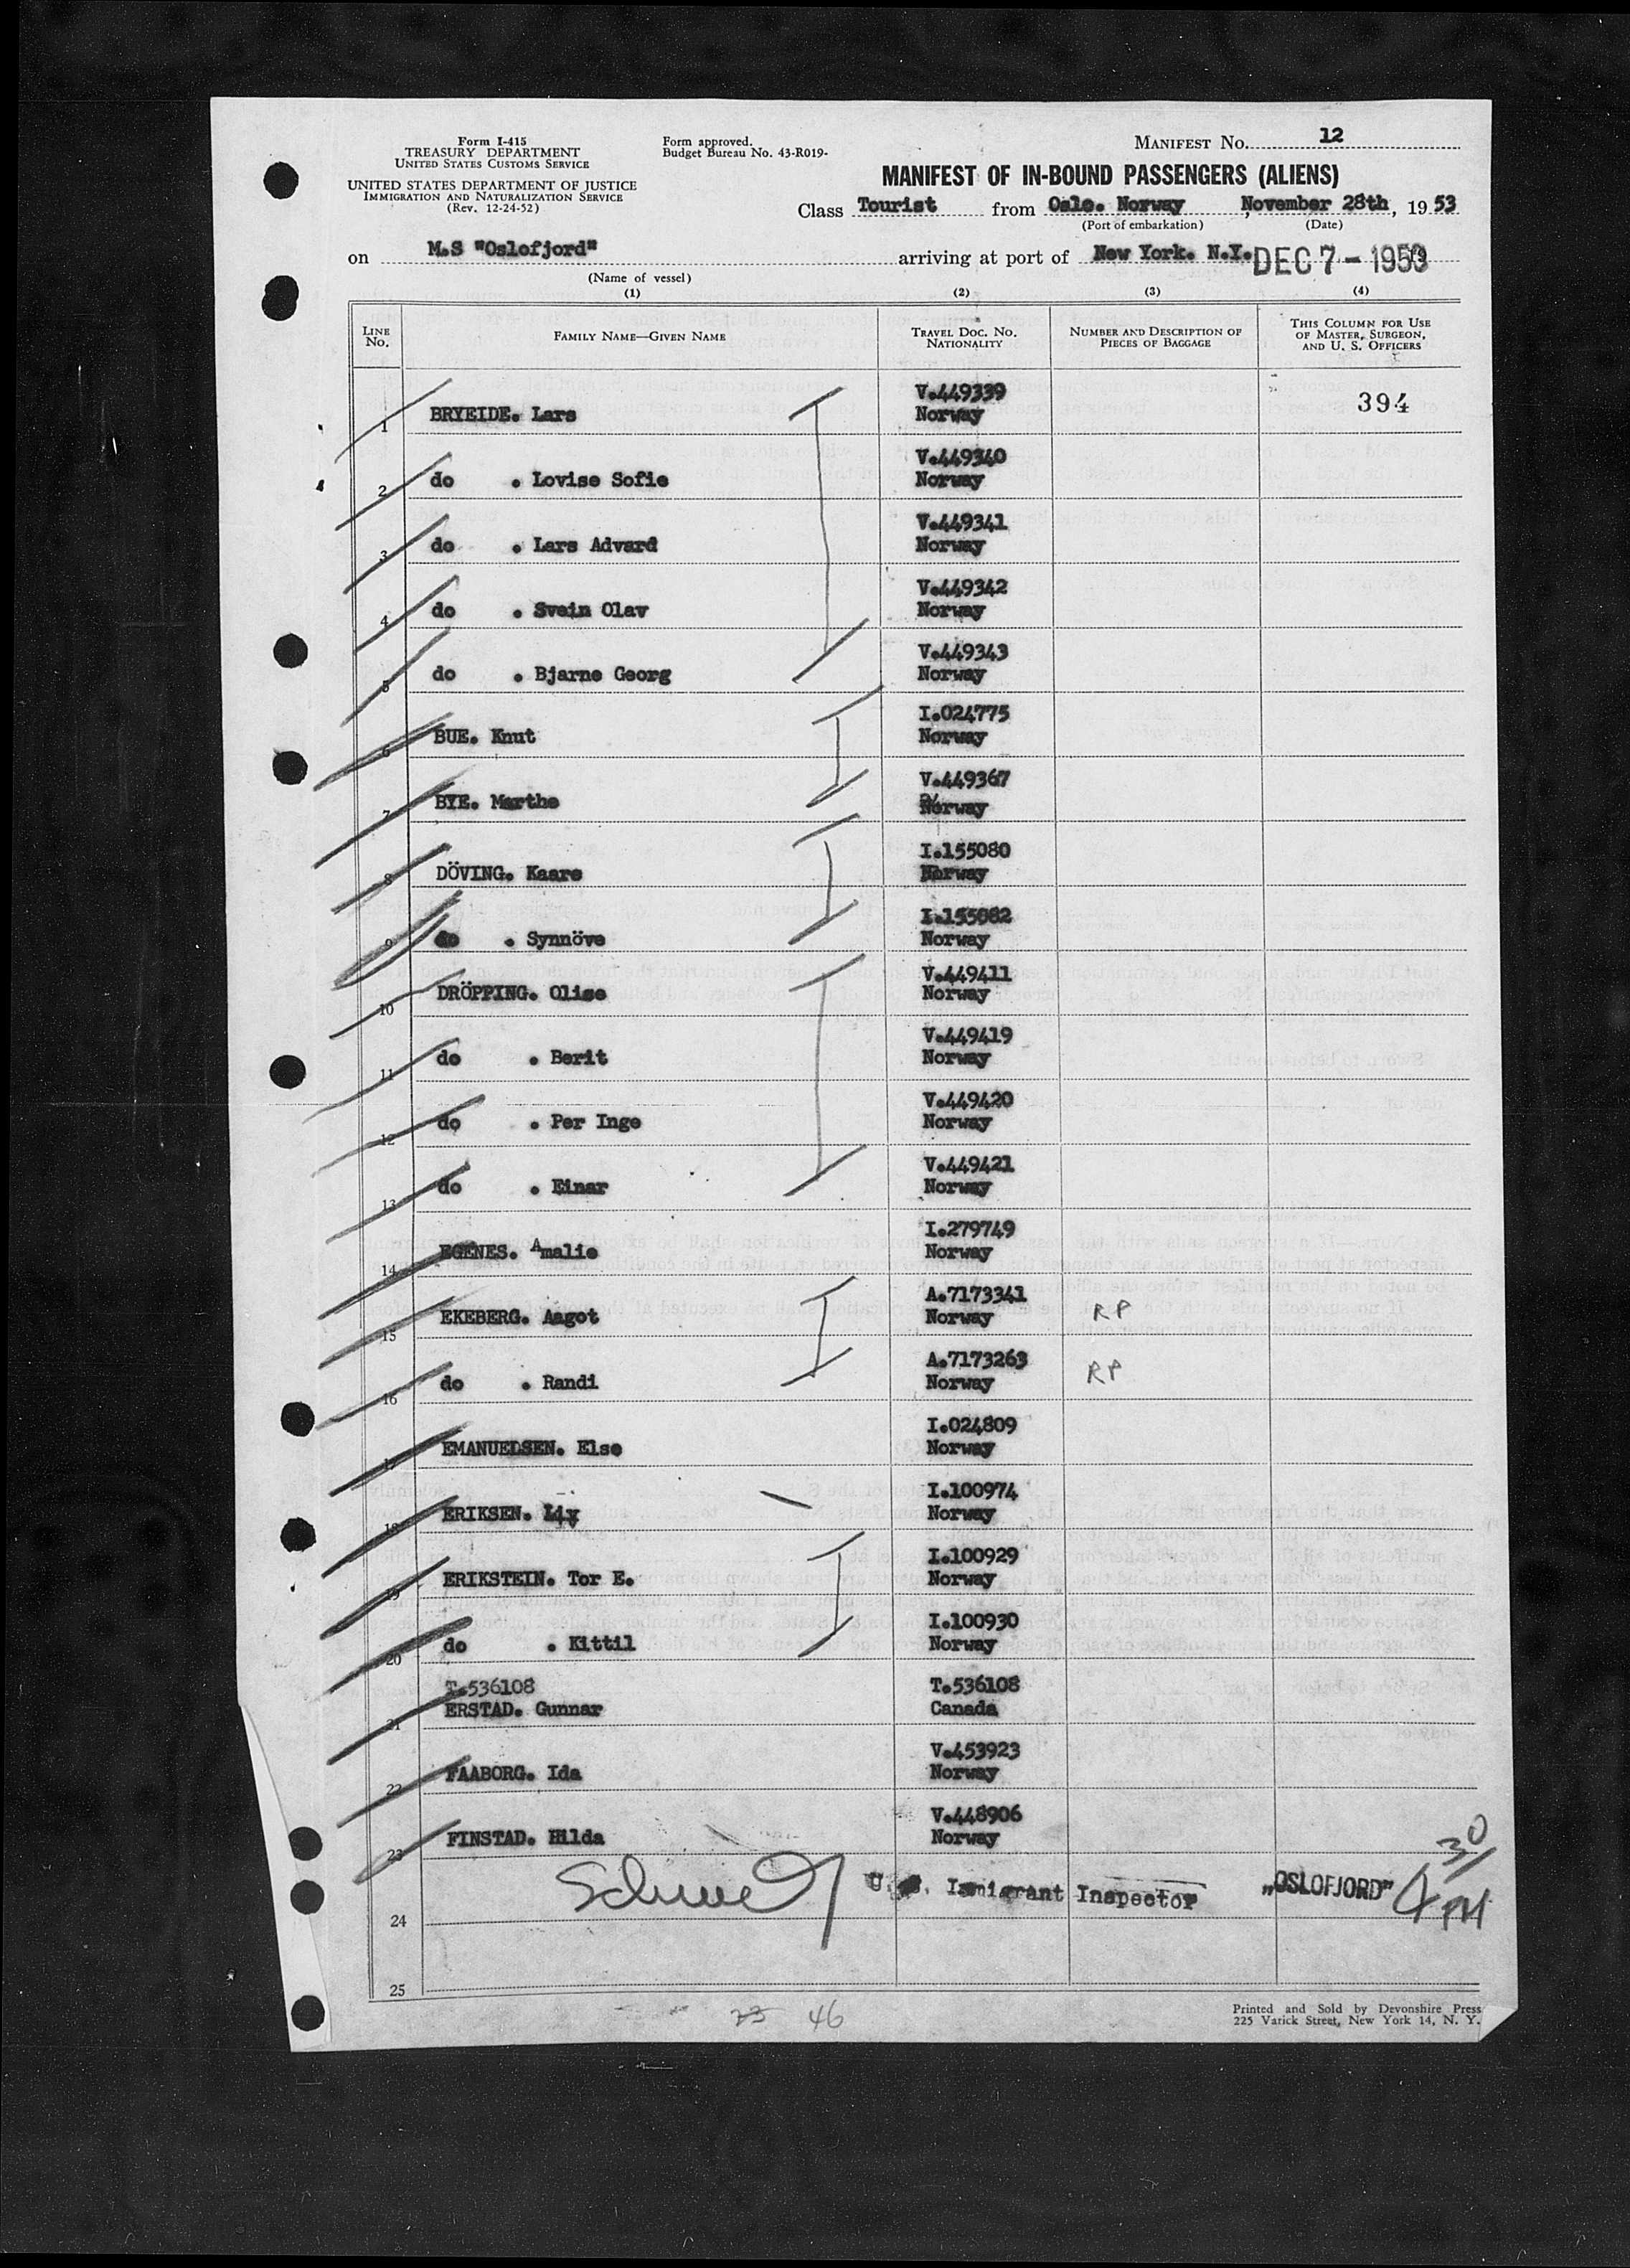 Form I-415
TREASURY DEPARTMENT
UNITED STATES CUSTOMS SERVICE
UNITED STATES DEPARTMENT OF JUSTICE
IMMIGRATION AND NATURALIZATION SERVICE
(Rev. 12-24-52)
Form approved.
Budget Bureau No. 43-R019-
MANIFEST NO. 12
MANIFEST OF IN-BOUND PASSENGERS (ALIENS)
Class Tourist from Oslo. Norway , November 28th, 19 53
(Port of embarkation) (Date)
on M.S "Oslofjord" arriving at port of New York. N.Y. DEC 7 - 1953
(Name of vessel)
(1) (2) (3) (4)
LINE NO. FAMILY NAME—GIVEN NAME TRAVEL DOC. NO. NATIONALITY NUMBER AND DESCRIPTION OF PIECES OF BAGGAGE THIS COLUMN FOR USE OF MASTER, SURGEON, AND U. S. OFFICERS
1 BRYEIDE. Lars V.449339 Norway 394
2 do . Lovise Sofie V.449340 Norway
3 do . Lars Advard V.449341 Norway
4 do . Svein Olav V.449342 Norway
5 do . Bjarne Georg V.449343 Norway
6 BUE. Knut I.024775 Norway
7 BYE. Marthe V.449367 Norway
8 DÖVING. Kaare I.155080 Norway
9 do . Synnöve I.155082 Norway
10 DRÖPPING. Olise V.449411 Norway
11 do . Berit V.449419 Norway
12 do . Per Inge V.449420 Norway
13 do . Einar V.449421 Norway
14 EGENES. Amalie I.279749 Norway
15 EKEBERG. Aagot A.7173341 Norway RP
16 do . Randi A.7173263 Norway RP
17 EMANUELSEN. Else I.024809 Norway
18 ERIKSEN. Liv I.100974 Norway
19 ERIKSTEIN. Tor E. I.100929 Norway
20 do . Kittil I.100930 Norway
T.536108
21 ERSTAD. Gunnar T.536108 Canada
22 FAABORG. Ida V.453923 Norway
23 FINSTAD. Hilda V.448906 Norway
U.S. Immigrant Inspector „OSLOFJORD" 4 30/PM
24
25
23 46
Printed and Sold by Devonshire Press
225 Varick Street, New York 14, N. Y.